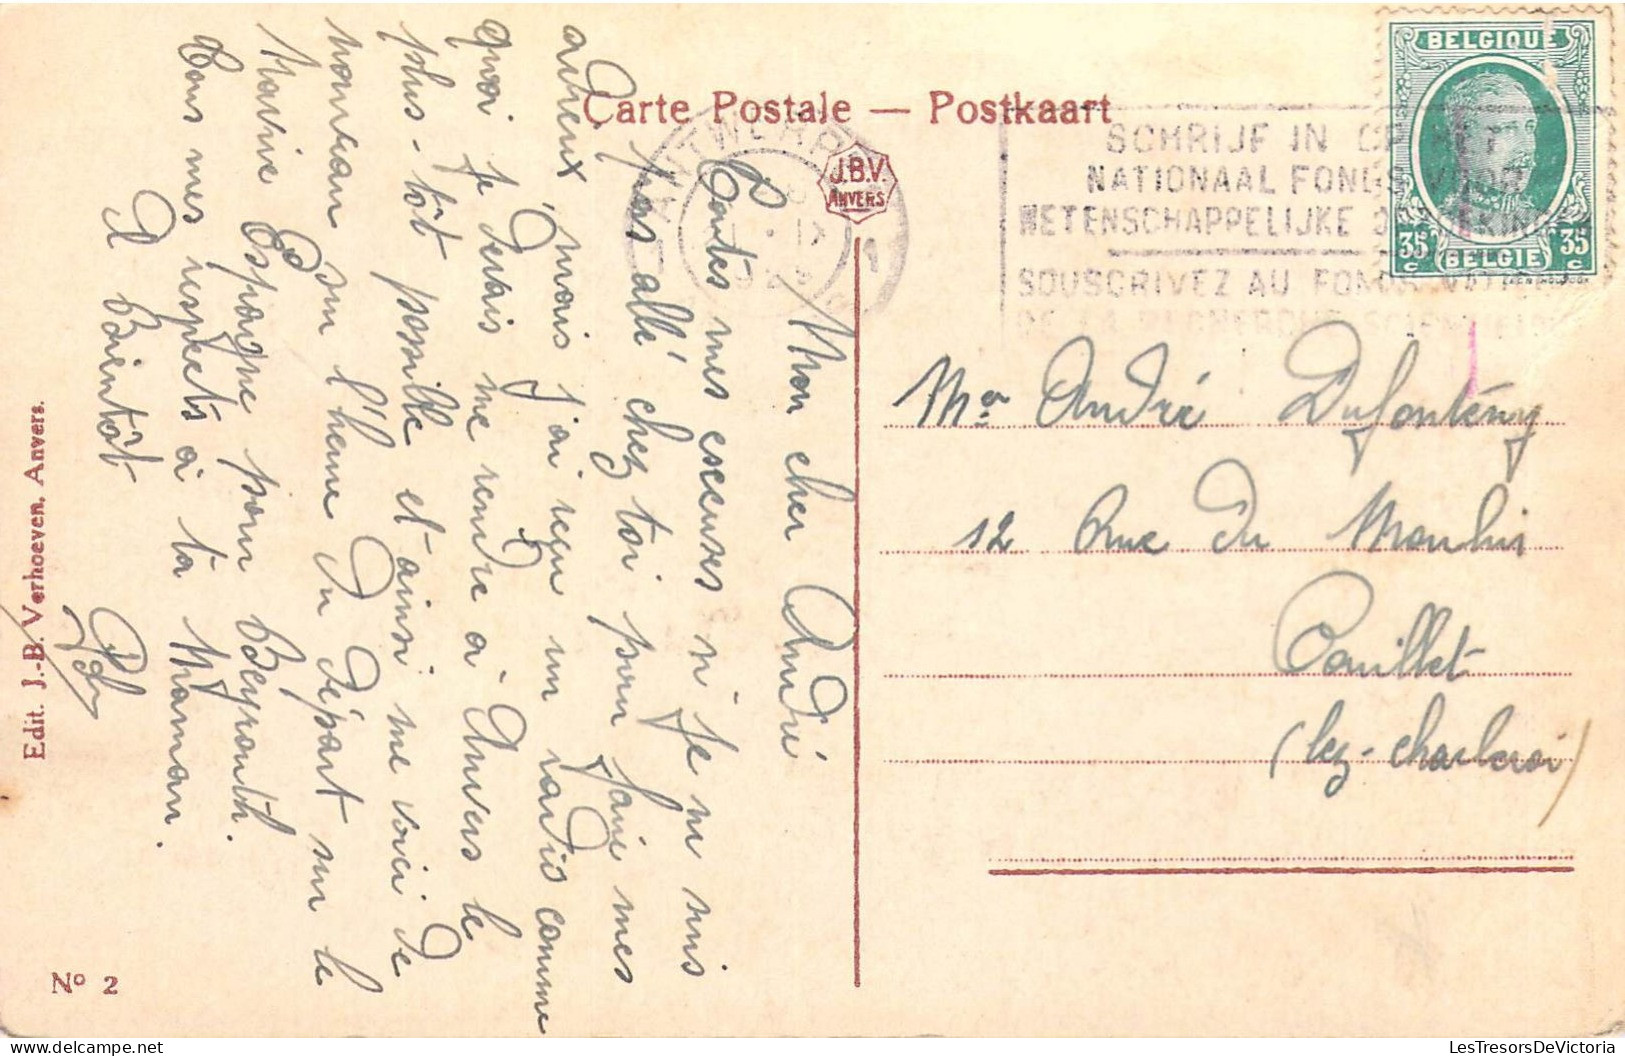 Carte Postale — Postkaart
J.B.V.
ANVERS
ANTWERPEN
1
BELGIQUE
35 c
35 c
BELGIE
SCHRIJF IN OP HET
NATIONAAL FONDS VOOR
WETENSCHAPPELIJKE
SOUSCRIVEZ AU FONDS
DE LA RECHERCHE
Mon cher André
Toutes mes excuses si je ne suis
pas allé chez toi pour faire mes
adieux, mais j'ai reçu un radio comme
quoi je devais me rendre à Anvers le
plus-tôt possible et ainsi me voici de
nouveau à l'heure du départ sur le
Espagne pour Beyrouth.
Tous mes respects à ta Maman.
A Bientôt
Mr André Dufonteny
12 Rue du Moulin
Couillet
(lez-Charleroi)
Edit. J.-B. Verhoeven, Anvers.
No 2
LesTresorsDeVictoria